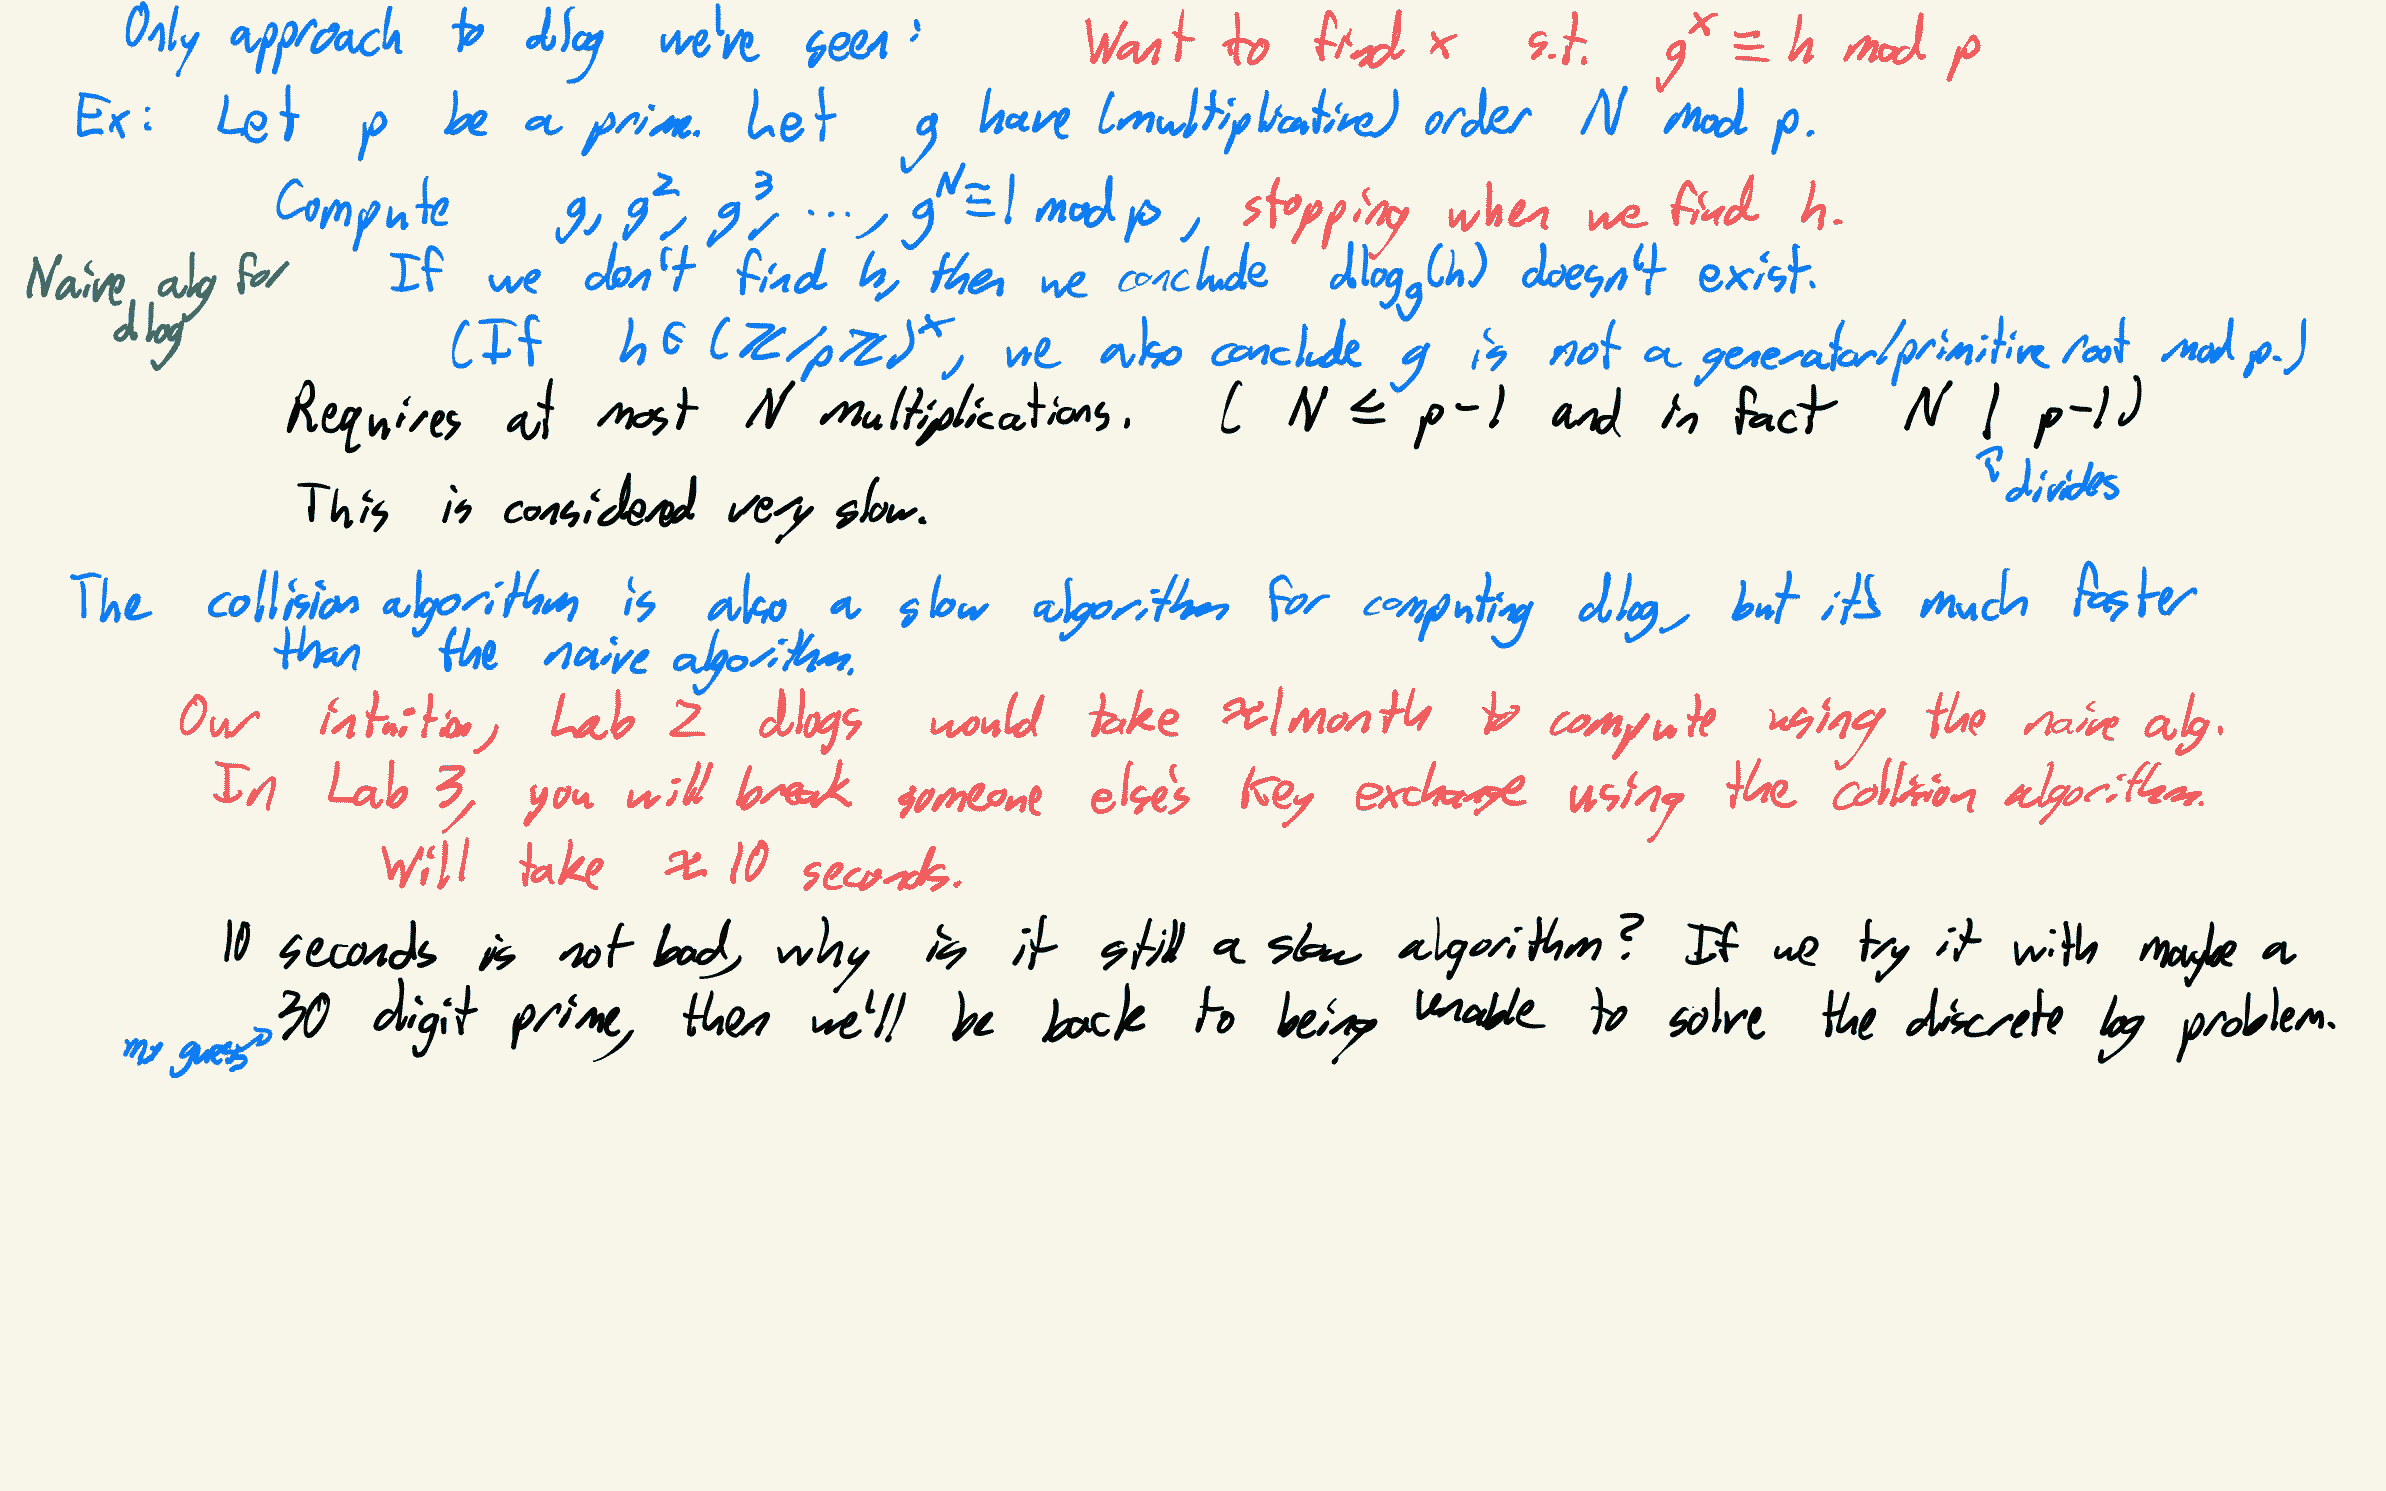 Only approach to dlog we've seen: Want to find x s.t. g^x ≡ h mod p
Ex: Let p be a prime. Let g have (multiplicative) order N mod p.
Compute g, g^2, g^3, ..., g^N ≡ 1 mod p, stopping when we find h.
Naive alg for dlog
If we don't find h, then we conclude dlog_g(h) doesn't exist.
(If h ∈ (ℤ/pℤ)^×, we also conclude g is not a generator/primitive root mod p.)
Requires at most N multiplications. (N ≤ p-1 and in fact N | p-1)
↑ divides
This is considered very slow.
The collision algorithm is also a slow algorithm for computing dlog, but it's much faster
than the naive algorithm.
Our intuition, Lab 2 dlogs would take ≈1 month to compute using the naive alg.
In Lab 3, you will break someone else's key exchange using the collision algorithm.
Will take ≈ 10 seconds.
10 seconds is not bad, why is it still a slow algorithm? If we try it with maybe a
30 digit prime, then we'll be back to being unable to solve the discrete log problem.
my guess →